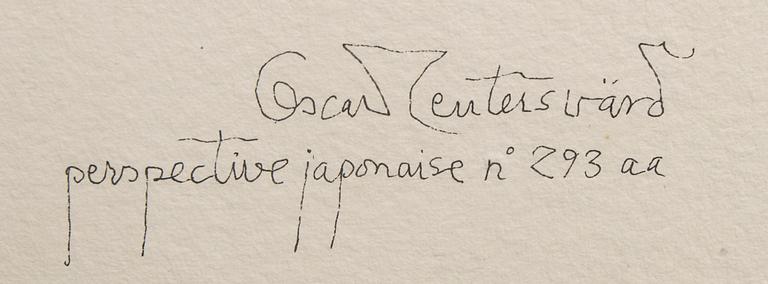 Oscar Reutersvärd
perspective japonaise n° 293 aa